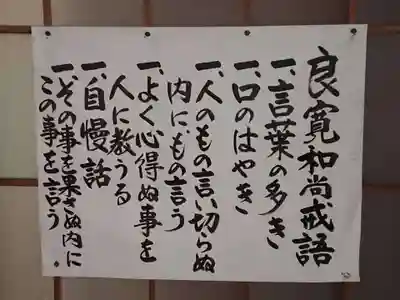 良寛和尚戒語
一、言葉の多き
一、口のはやき
一、人のもの言い切らぬ
内にもの言う
一、よく心得ぬ事を
人に教うる
一、自慢話
一、その事を果さぬ内に
この事を言う